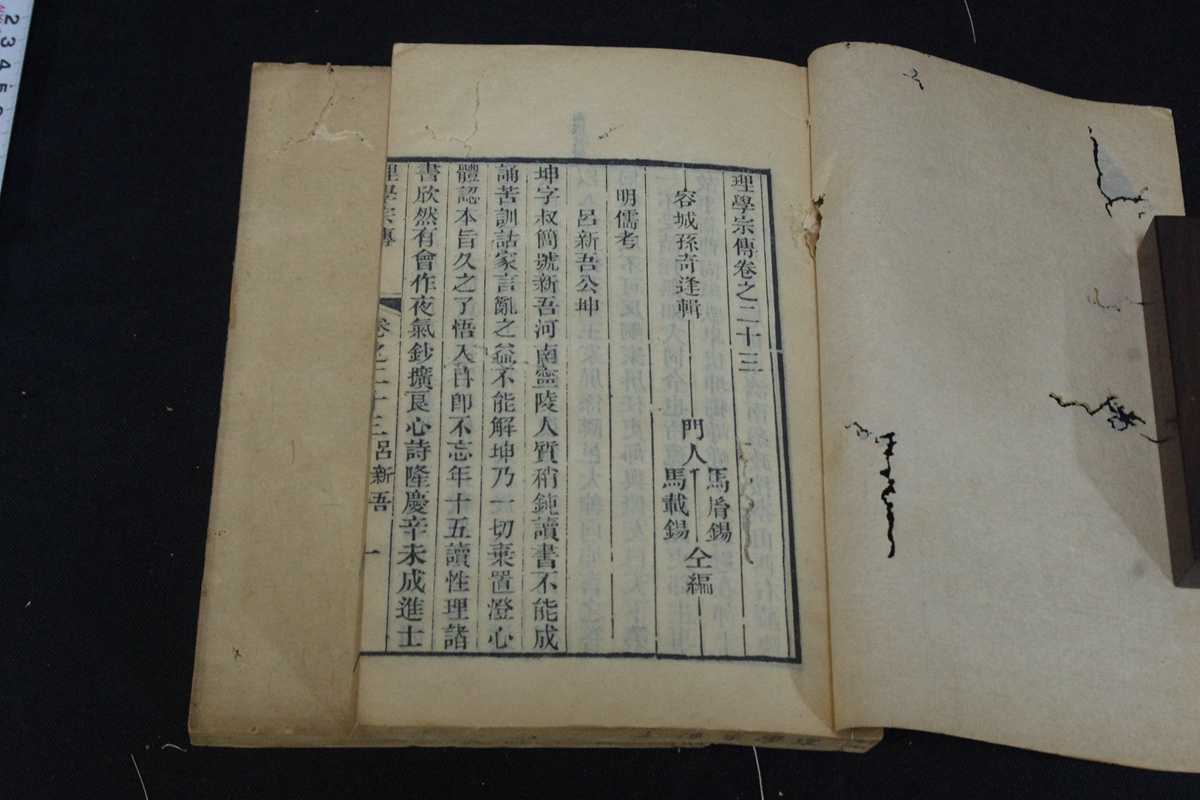 理學宗傳卷之二十三
容城孫奇逢輯
門人
馬㞕鍚
馬載鍚
仝編
明儒考
呂新吾公坤
坤字叔簡號新吾河南寧陵人質稍鈍讀書不能成
誦苦訓詁家言亂之益不能解坤乃一切棄置澄心
體認本旨久之了悟入目即不忘年十五讀性理諸
書欣然有會作夜氣鈔擴良心詩隆慶辛未成進士
理學宗傳
卷之二十三呂新吾
一
2 3 4 5